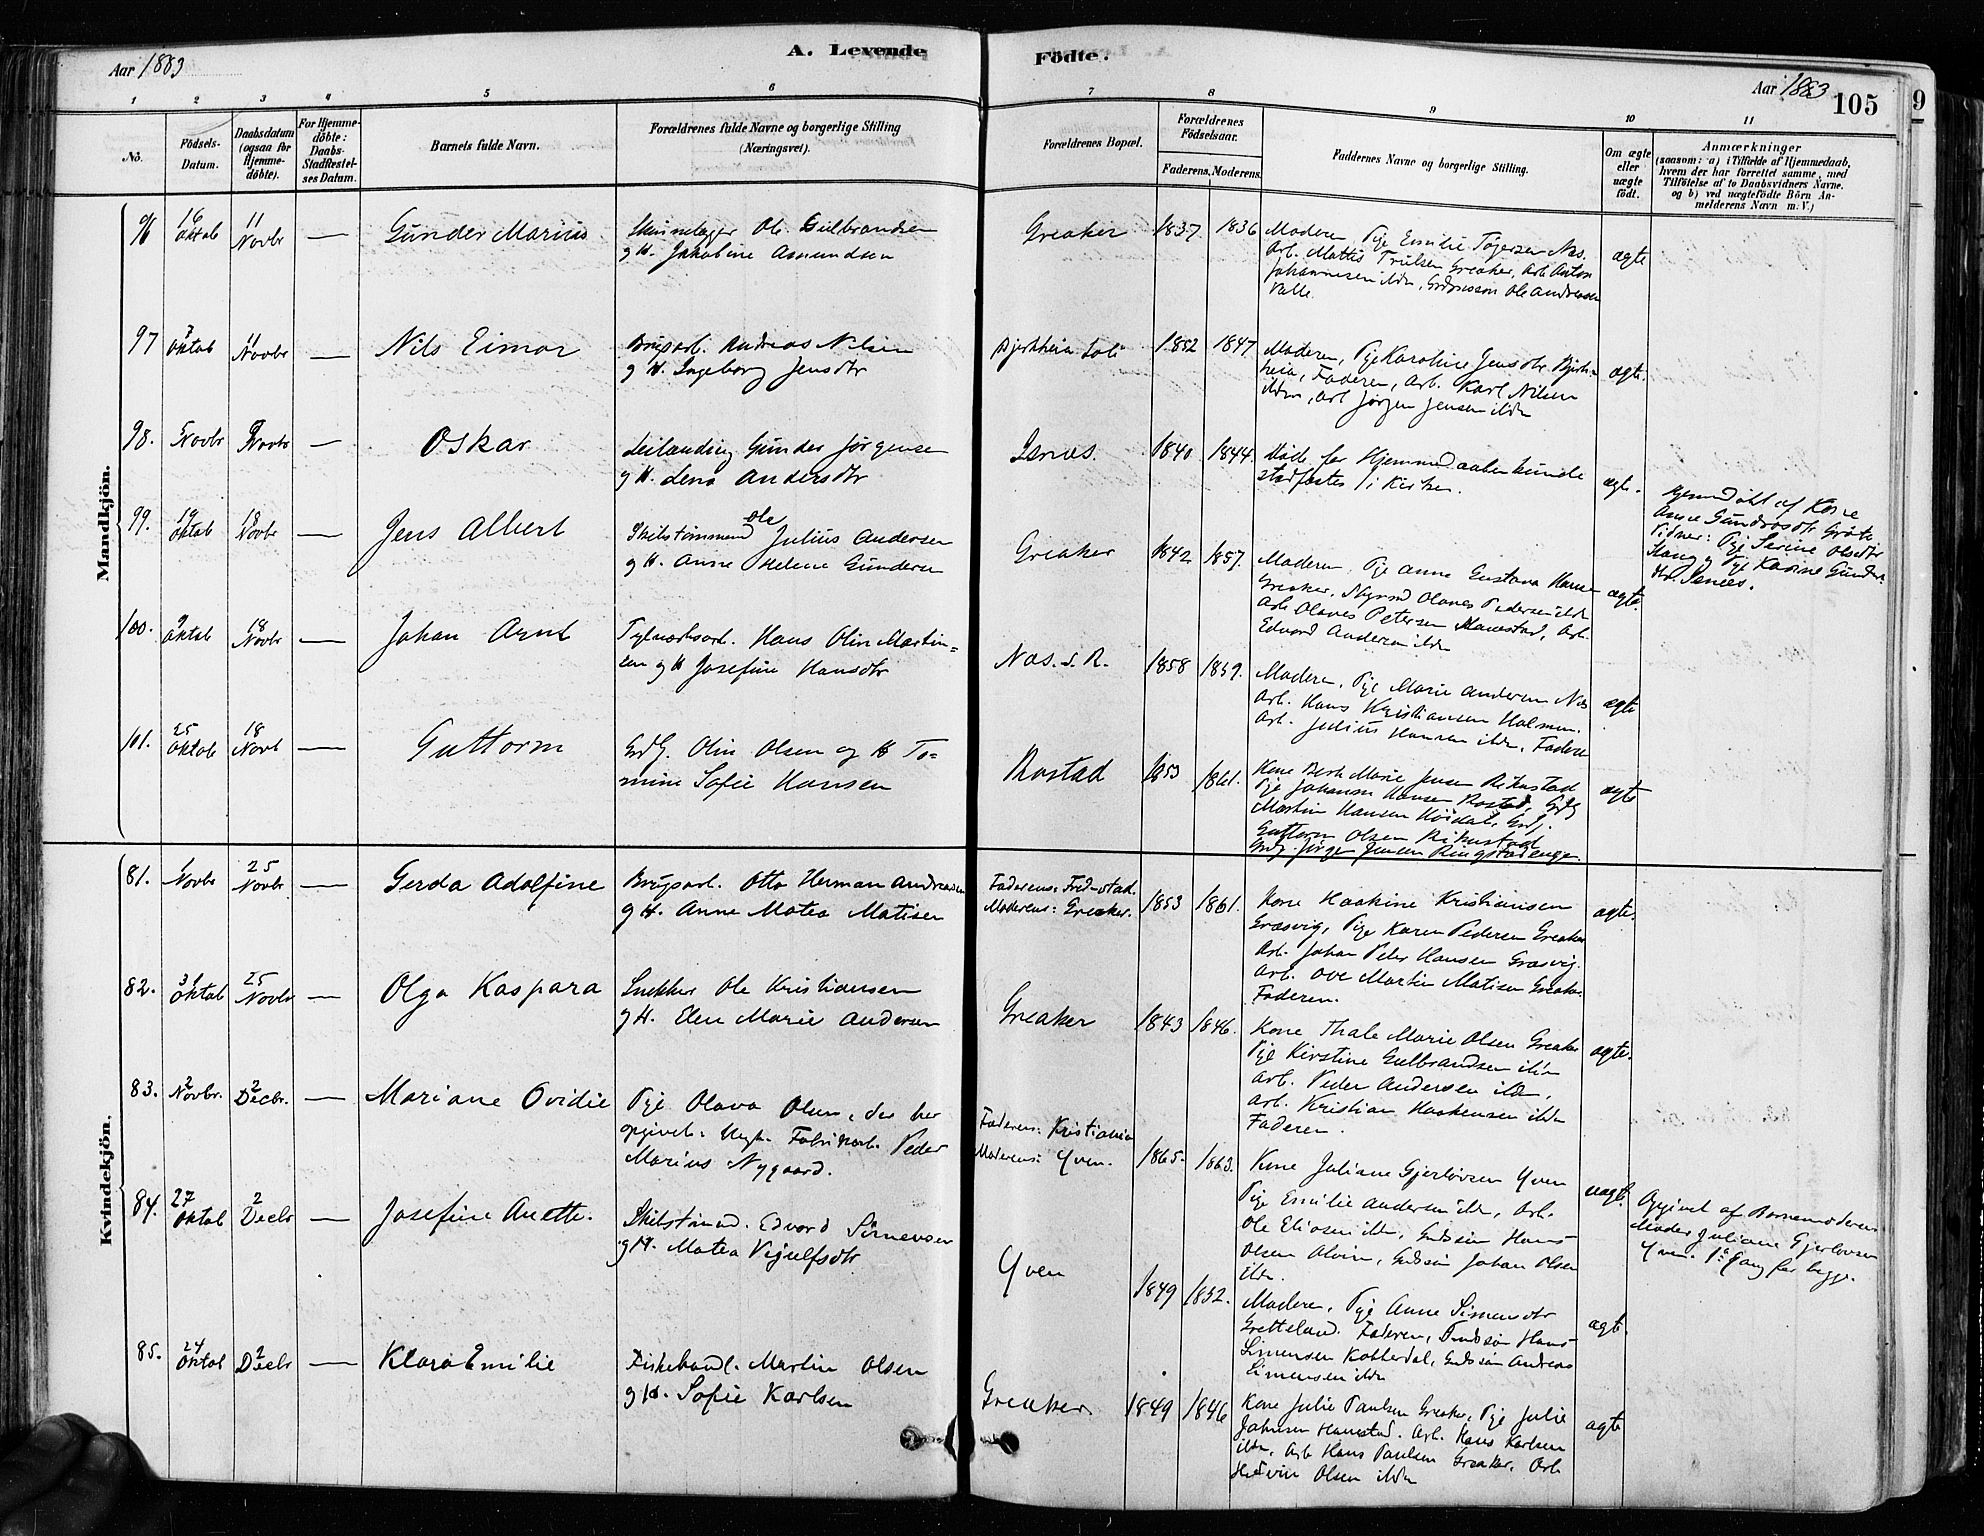 Aar 1883
A. Levende
Födte.
Aar 1883
105
9
1
2
3
4
5
6
7
8
9
10
11
No.
Födsels-
Datum.
Daabsdatum
(ogsaa for
Hjemme-
döbte).
For Hjemme-
döbte:
Daabs-
Stadfæstel-
ses Datum.
Barnets fulde Navn.
Forældrenes fulde Navne og borgerlige Stilling
(Næringsvei).
Forældrenes Bopæl.
Forældrenes
Födselsaar.
Faderens. Moderens.
Faddernes Navne og borgerlige Stilling.
Om ægte
eller
uægte
födt.
Anmærkninger
(saasom: a) i Tilfælde af Hjemmedaab,
hvem der har forrettet samme, med
Tilföielse af to Daabsvidners Navne.
og b) ved uægtefödte Börn An-
melderens Navn m. V.)
Mandkjön.
96
16
Oktob
11
Novbr
—
Gunder Marius
Ole Gulbrandsen
og H. Jakobine Amundsen
Greaker
1837
1836
Moderen, Pige Emilie Næs.
Arb. Mattis Trulsen Greaker, Arb Anton
Johannesen ildn, Ole Andreasen
Valle.
ægte
97
7
Oktob
11
Novbr
—
Nils Eimar
Brugsarb. Andreas Nilsen
og H. Ingeborg Jensdtr
1852
1847
Moderen, Pige Karoline Jensdtr. Bjerk-
heia, Faderen, Arb. Karl Nilsen
ildn, Arb Jørgen Jensen ildn
ægte.
98.
5
Novbr
9
Novbr
—
Oskar
Leilænding Gunder Jørgensen
og H. Lena Andersdtr
Isnæs.
1840
1844.
Døde før Hjemmedaaben kunde
stadfæstes i Kirken.
ægte.
Hjemmedöbt af Kone
Anne
Vidner: Pige Serine Olsdtr
Pige Karine
Isnæs.
99.
19
Oktob
18
Novbr
—
Jens Albert
Skibstømmermd Ole Julius Andersen
og H. Anne Helene Gundersen
Greaker
1842
1857.
Moderen, Pige Anne Gustava
Greaker, Olaves Pedersen ildn
Arb Olaves Petersen Hannestad, Arb.
Edvard Andersen ildn
ægte.
100.
9
Oktob
18
Novbr
—
Johan Arnt
Teglværksarb. Hans Olin Martin-
sen og H Josefine Hansdtr
Næs. s. R.
1858
1859.
Moderen, Pige Marie Andersen Næs
Arb. Hans Kristiansen Holmen.
Arb. Julius Hansen ildn, Faderen
ægte
101.
25
Oktob
18
Novb
—
Guttorm
Grdbr. Olin Olsen og H To-
mine Sofie Hansen
Rostad
1853
1861.
Kone Berte Marie Jensen Rikustad
Pige Johanne Hansen Rostad, Grdbr
Martin Hansen Høidal, Grdbr.
Guttorm Olsen Rikustad
Grdbr. Jørgen Jensen Ringstadenge.
ægte
Kvindekjön.
81.
1
Novbr
25
Novbr
—
Gerda Adolfine
Brugsarb. Otto Herman Andreasen
og H. Anne Matea Matisen
Faderens: Fredrstad.
Moderens: Greaker.
1853
1861.
Kone Haakine Kristiansen
Græsvig, Pige Karen Pedersen Greaker
Arb. Johan Peter Hansen Græsvig.
Arb. Ove Martin Matisen Greaker.
Faderen.
ægte.
82.
31
Oktob
25
Novbr
—
Olga Kaspara
Snekker Ole Kristiansen
og H. Elen Marie Andersen
Greaker
1843
1846.
Kone Thale Marie Olsen Greaker
Pige Kirstine Gulbrandsen ildn
Arb. Peder Andersen ildn,
Arb. Kristian Haakensen ildn
Faderen.
ægte.
83.
2
Novbr.
2
Decbr.
—
Mariane Ovidie
Pige Olava Olsen, der har
opgivet: Ungk. Fabrikarb. Peder
Marius Nygaard.
Faderens: Kristiania
Moderens: Yven.
1865.
1863.
Kone Juliane Gjerløvsen Yven
Pige Emilie Andersen ildn, Arb.
Ole Eliasen ildn, Grdsøn Hans
Olsen Alvim, Grdsøn Johan Olsen
ildn.
uægt.
Opgivet af Barnemoderens
Moder Juliane Gjerløvsen
Yven. 1ste Gang for begge.
84.
27
Oktob
2
Decbr
—
Josefine Anette.
Skibstømmd. Edvard Simensen
og H. Matea Vejulfsdtr
Yven
1849
1852.
Moderen, Pige Anne Simensdtr
Gretteland. Faderen, Grdsøn Hans
Simensen Kobberdal, Grdsøn Andreas
Simensen ildn
ægte.
85.
24
Oktob
2
Decbr
—
Klara Emilie
Fiskehandl. Martin Olsen
og H. Sofie Karlsen
Greaker
1849
1846
Kone Julie Paulsen Greaker, Pige Julie
Johnsen Hannestad. Arb. Hans Karlsen
ildn, Arb Hans Paulsen Greaker, Arb
Olsen ildn
ægte